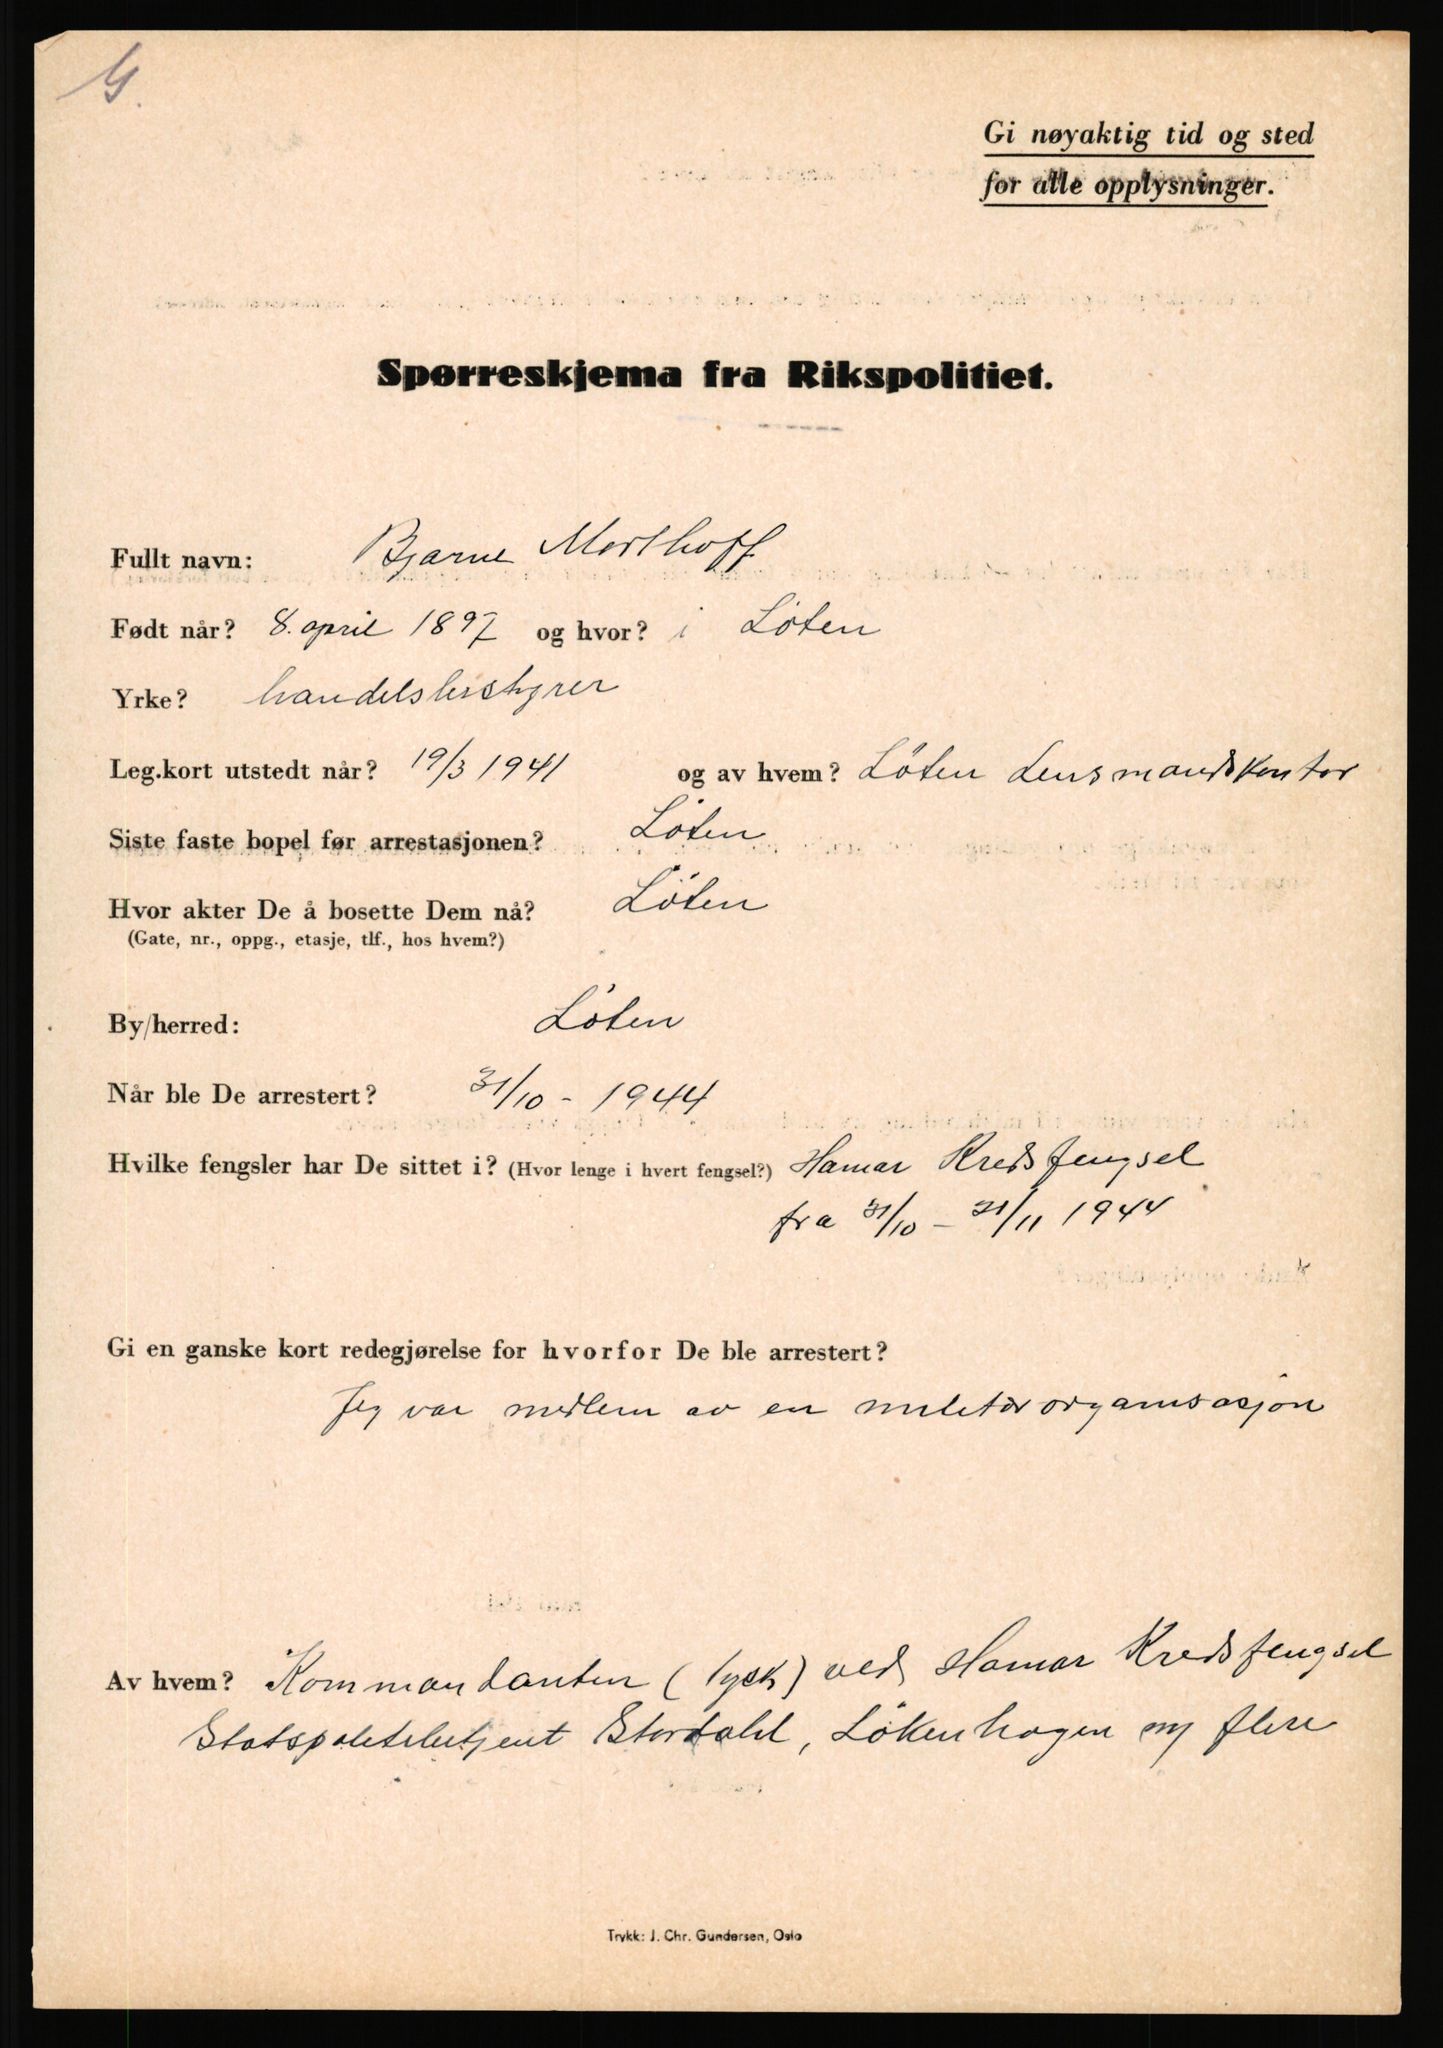 G.
Gi nøyaktig tid og sted
for alle opplysninger.
Spørreskjema fra Rikspolitiet.
Fullt navn: Bjarne Morthoff
Født når? 8. april 1897 og hvor? i Löten
Yrke? handelsbestyrer
Leg.kort utstedt når? 19/3 1941 og av hvem? Löten Lensmandskontor
Siste faste bopel før arrestasjonen? Löten
Hvor akter De å bosette Dem nå? Löten
(Gate, nr., oppg., etasje, tlf., hos hvem?)
By/herred: Löten
Når ble De arrestert? 31/10 - 1944
Hvilke fengsler har De sittet i? (Hvor lenge i hvert fengsel?) Hamar Kredsfengsel
fra 31/10 - 21/11 1944
Gi en ganske kort redegjørelse for hvorfor De ble arrestert?
Jeg var medlem av en militærorganisasjon
Av hvem? Kommandanten (tysk) ved Hamar Kredsfengsel
Statspolitibetjent Stordahl, Lökenhagen og flere
Trykk: J. Chr. Gundersen, Oslo